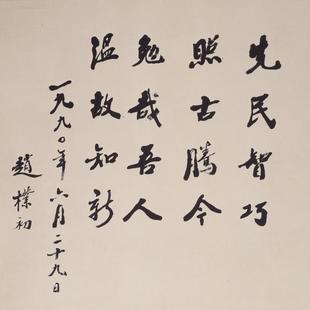 先民智巧
照古騰今
勉哉吾人
温故知新
一九九〇年六月二十九日
趙樸初